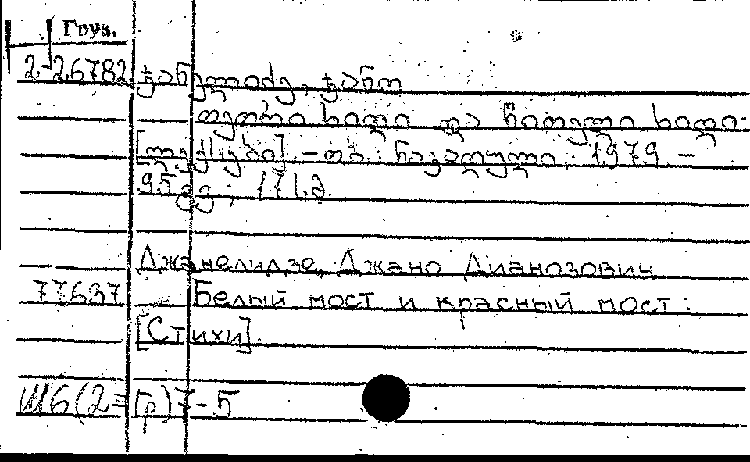 Груз.
2-26782 ჯანელიძე, ჯანო
თეთრი ხიდი და წითელი ხიდი:
[ლექსები]. – თბ.: ნაკადული, 1979. –
95 გვ.;
Джанелидзе, Джано Дианозович
77637 Белый мост и красный мост:
[Стихи].
Ш6(2=Гр)7-5